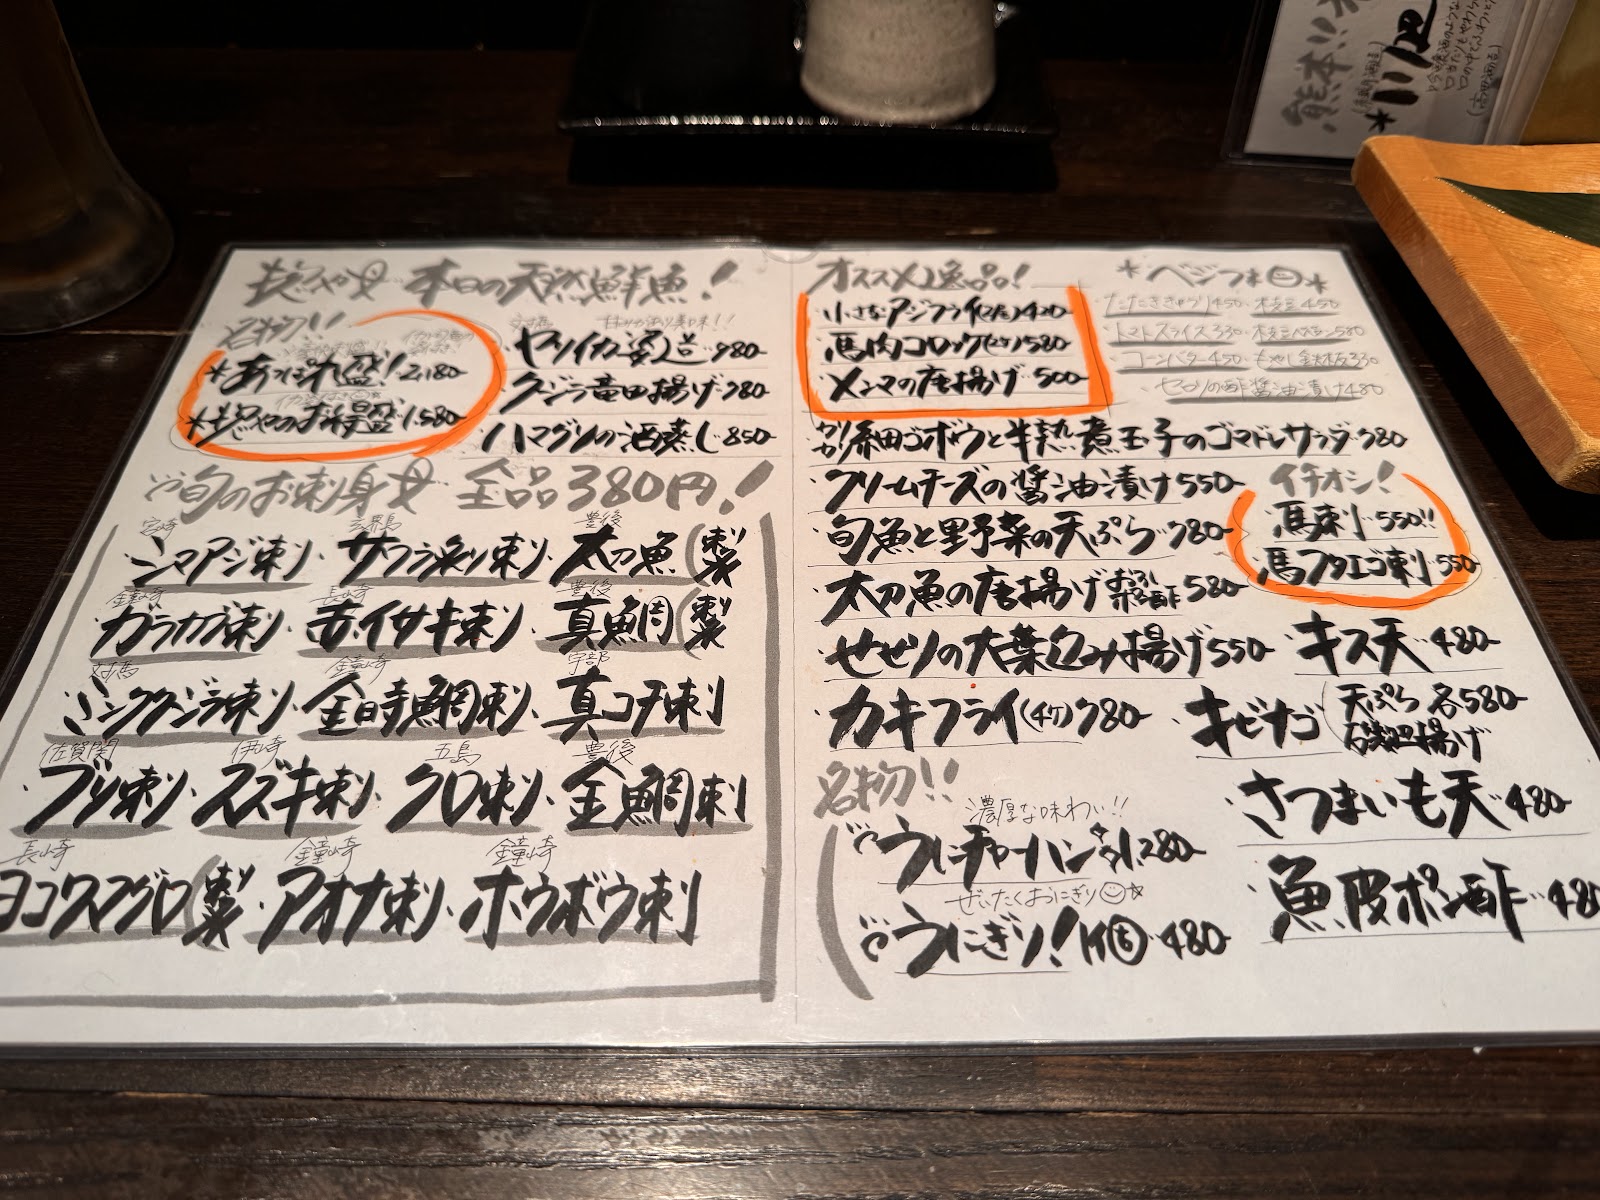 本日の天然鮮魚!
名物!!
*あっぱれ盛! 2,180-
*もじゃのお得盛! 1,580-
対馬 甘みがあり美味!!
ヤリイカ姿造 980-
クジラ竜田揚げ 780-
ハマグリの酒蒸し 850-
旬のお刺身 全品380円!
宮崎 玄界島 豊後
シマアジ刺・サワラ炙り刺・太刀魚(刺 炙
鐘崎 長崎 豊後
ガラカブ刺・赤イサキ刺・真鯛(刺 炙
対馬 鐘崎 宇部
ミンククジラ刺・金時鯛刺・真コチ刺
佐賀関 伊崎 五島 豊後
ブリ刺・スズキ刺・クロ刺・金鯛刺
長崎 鐘崎 鐘崎
ヨコワマグロ(刺 炙・アオナ刺・ホウボウ刺
オススメ逸品!
小さなアジフライ(2尾) 420-
馬肉コロッケ(2ケ) 580-
メンマの唐揚げ 500-
*ベジつまθ*
たたききゅうり450・枝豆450
トマトスライス330・枝豆ペペロン580
コーンバター450・もやし鉄板330
セロリの酢醤油漬け480
カリカリ細田ゴボウと半熟煮玉子のゴマドレサラダ 780
クリームチーズの醤油漬け 550-
旬魚と野菜の天ぷら 780-
太刀魚の唐揚げ おろしポン酢 580-
せせりの大葉包み揚げ 550
カキフライ(4ケ) 780-
イチオシ!
馬刺 550!!
馬フタエゴ刺 550
キス天 480-
キビナゴ(天ぷら 磯辺揚げ 各580
さつまいも天 480-
魚皮ポン酢 480
名物!!
濃厚な味わい!!
うにチャーハン 1,280-
ぜいたくおにぎり
うにぎり! 480-
熊本
口の中でふわっと